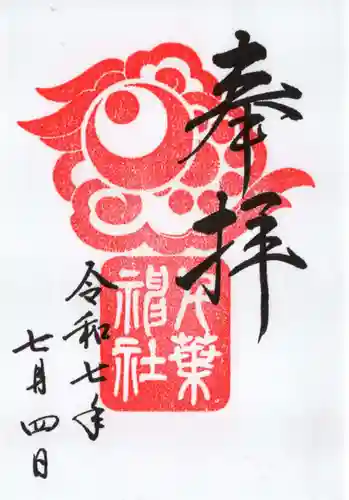 奉拝
月葉
神社
令和七年
七月四日